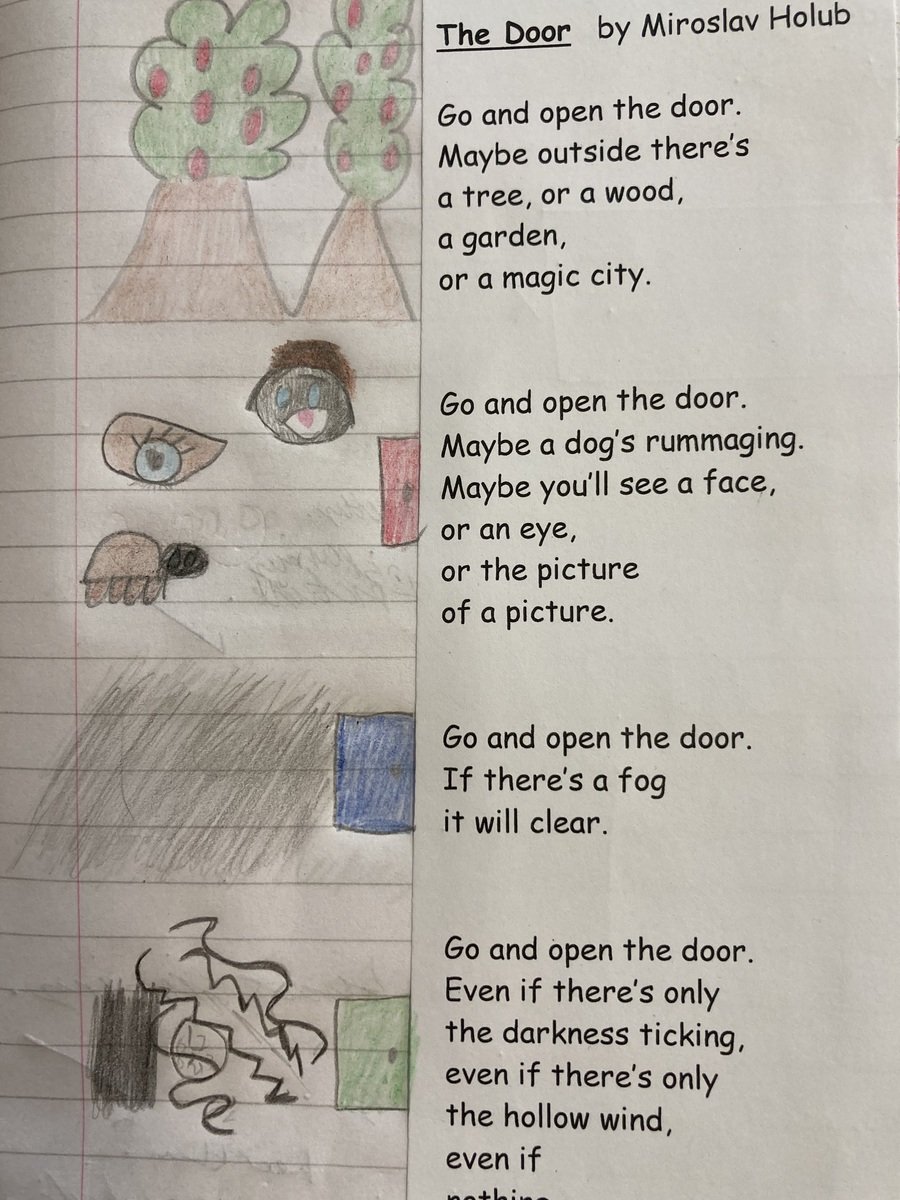 The Door by Miroslav Holub
Go and open the door.
Maybe outside there's
a tree, or a wood,
a garden,
or a magic city.
Go and open the door.
Maybe a dog's rummaging.
Maybe you'll see a face,
or an eye,
or the picture
of a picture.
Go and open the door.
If there's a fog
it will clear.
Go and open the door.
Even if there's only
the darkness ticking,
even if there's only
the hollow wind,
even if
nothing